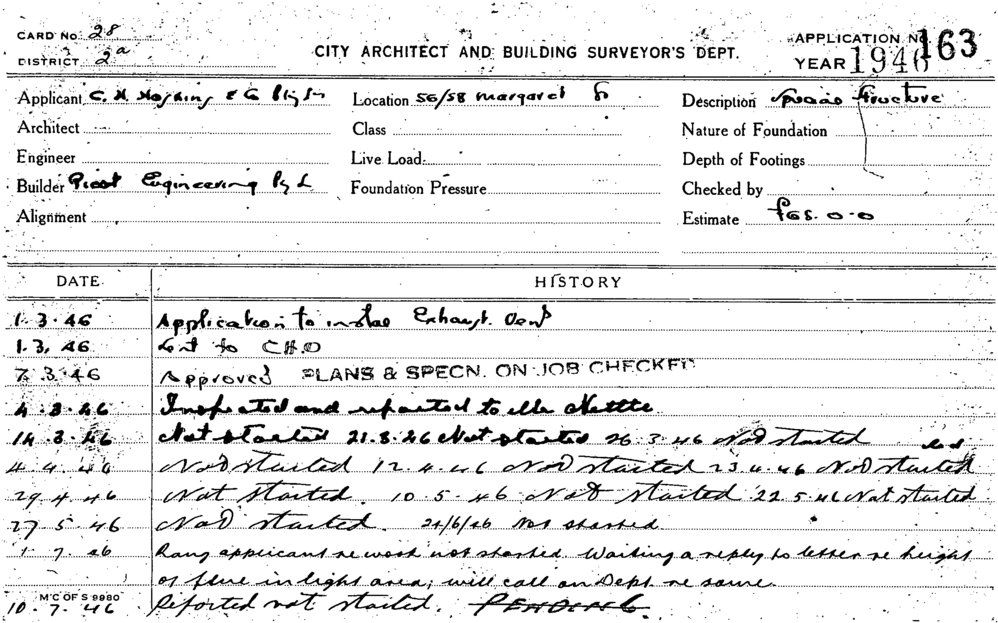 CARD No. 28
DISTRICT 2a
CITY ARCHITECT AND BUILDING SURVEYOR'S DEPT.
APPLICATION No. 163
YEAR 1946
Applicant C. H. Hoskins & Co Pty Ltd Location 56/58 Margaret St Description Specia Structure
Architect Class Nature of Foundation
Engineer Live Load Depth of Footings
Builder Engineering Pty L Foundation Pressure Checked by
Alignment Estimate £65.0.0
DATE HISTORY
1.3.46 Application to instal Exhaust Vent
1.3.46 Sent to CHO
7.3.46 Approved PLANS & SPECN. ON JOB CHECKED
4.3.46 Inspected and reported to Mr Nettle
14.3.46 Not started 21.3.46 Not started 26.3.46 Not started
4.4.46 Not started 12.4.46 Not started 23.4.46 Not started
29.4.46 Not started. 10.5.46 Not started 22.5.46 Not started
27.5.46 Not started. 24/6/46 Not started
1.7.46 Rang applicant re work not started. Waiting a reply to letter re height
of flue in light area; will call on Dept. re same.
M'C OF S 9980
10.7.46 Reported not started. PENDING